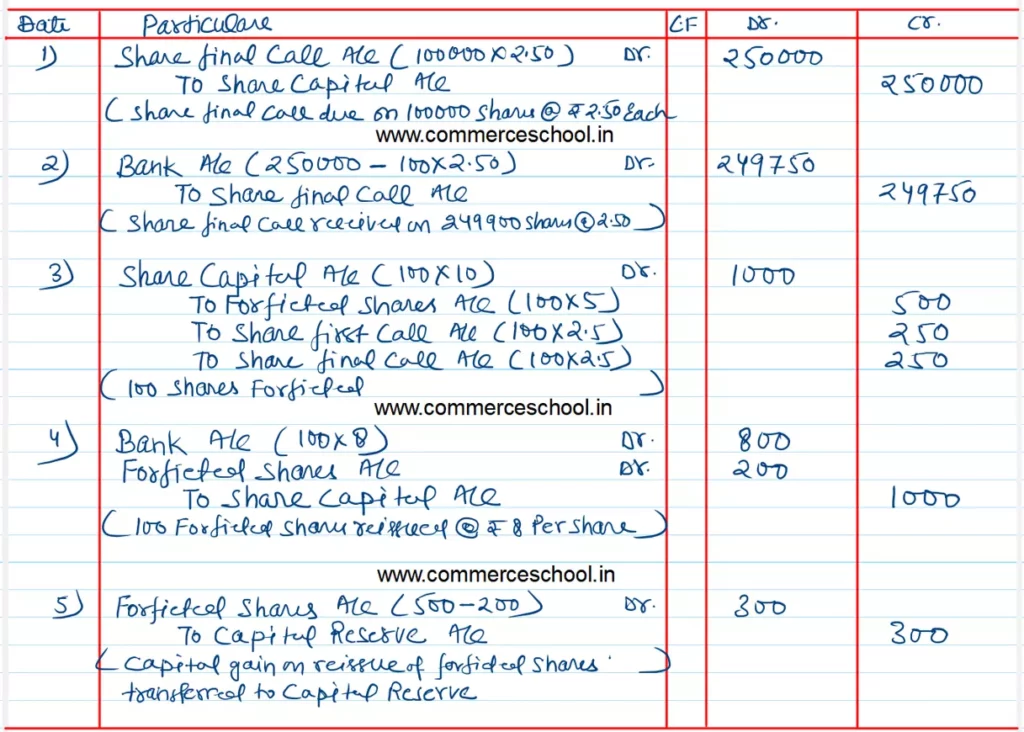 Date Particulare CF Dr. Cr.
1) Share final Call A/c (100000 X 2.50) Dr. 250000
To Share Capital A/c 250000
( Share final call due on 100000 Shares @ ₹ 2.50 Each
www.commerceschool.in
2) Bank A/c (250000 - 100 X 2.50) Dr. 249750
To Share final Call A/c 249750
( Share final call received on 249900 shares @ 2.50 )
3) Share Capital A/c (100 X 10) Dr. 1000
To Forficted Shares A/c (100 X 5) 500
To Share first Call A/c (100 X 2.5) 250
To Share final Call A/c (100 X 2.5) 250
( 100 Shares Forficted )
www.commerceschool.in
4) Bank A/c (100 X 8) Dr. 800
Forficted Shares A/c Dr. 200
To Share Capital A/c 1000
( 100 Forficted Shares reissued @ ₹ 8 Per Share )
www.commerceschool.in
5) Forficted Shares A/c (500-200) Dr. 300
To Capital Reserve A/c 300
( Capital gain on reissue of forficted shares )
transferred to Capital Reserve